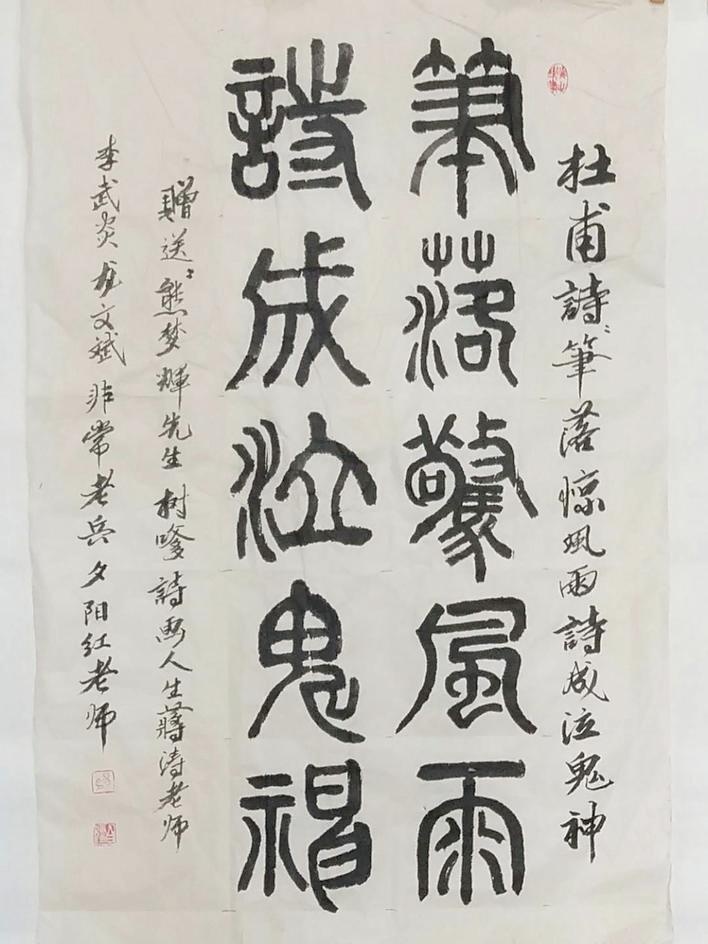 杜甫詩：筆落惊风雨詩成泣鬼神
筆落驚風雨
詩成泣鬼神
赠送：熊梦辉先生 树嗳 詩画人生蒋涛老师
李武炎 龙文斌 非常老兵 夕阳红老师